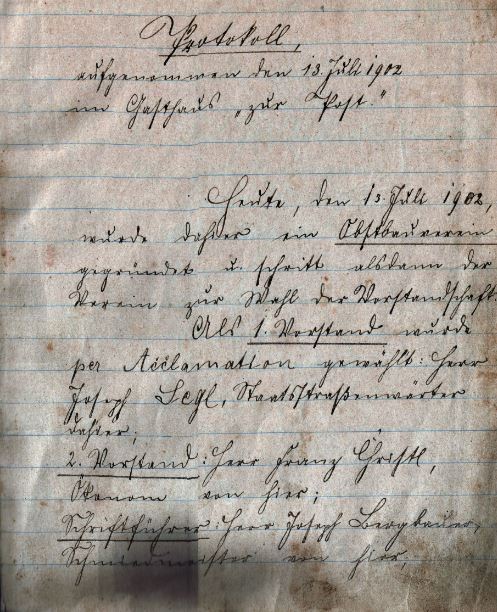 Protokoll,
aufgenommen den 13. Juli 1902
im Gasthaus „zur Post."
Heute, den 13. Juli 1902,
wurde dahier ein Obstbauverein
gegründet u. schritt alsdann der
Verein zur Wahl der Vorstandschaft
Als 1. Vorstand wurde
per Acclamation gewählt: Herr
Joseph Segl, Staatsstraßenwärter
dahier;
2. Vorstand: Herr Franz Christl,
Ökonom von hier;
Schriftführer: Herr Joseph Bergbauer,
Schmiedmeister von hier,